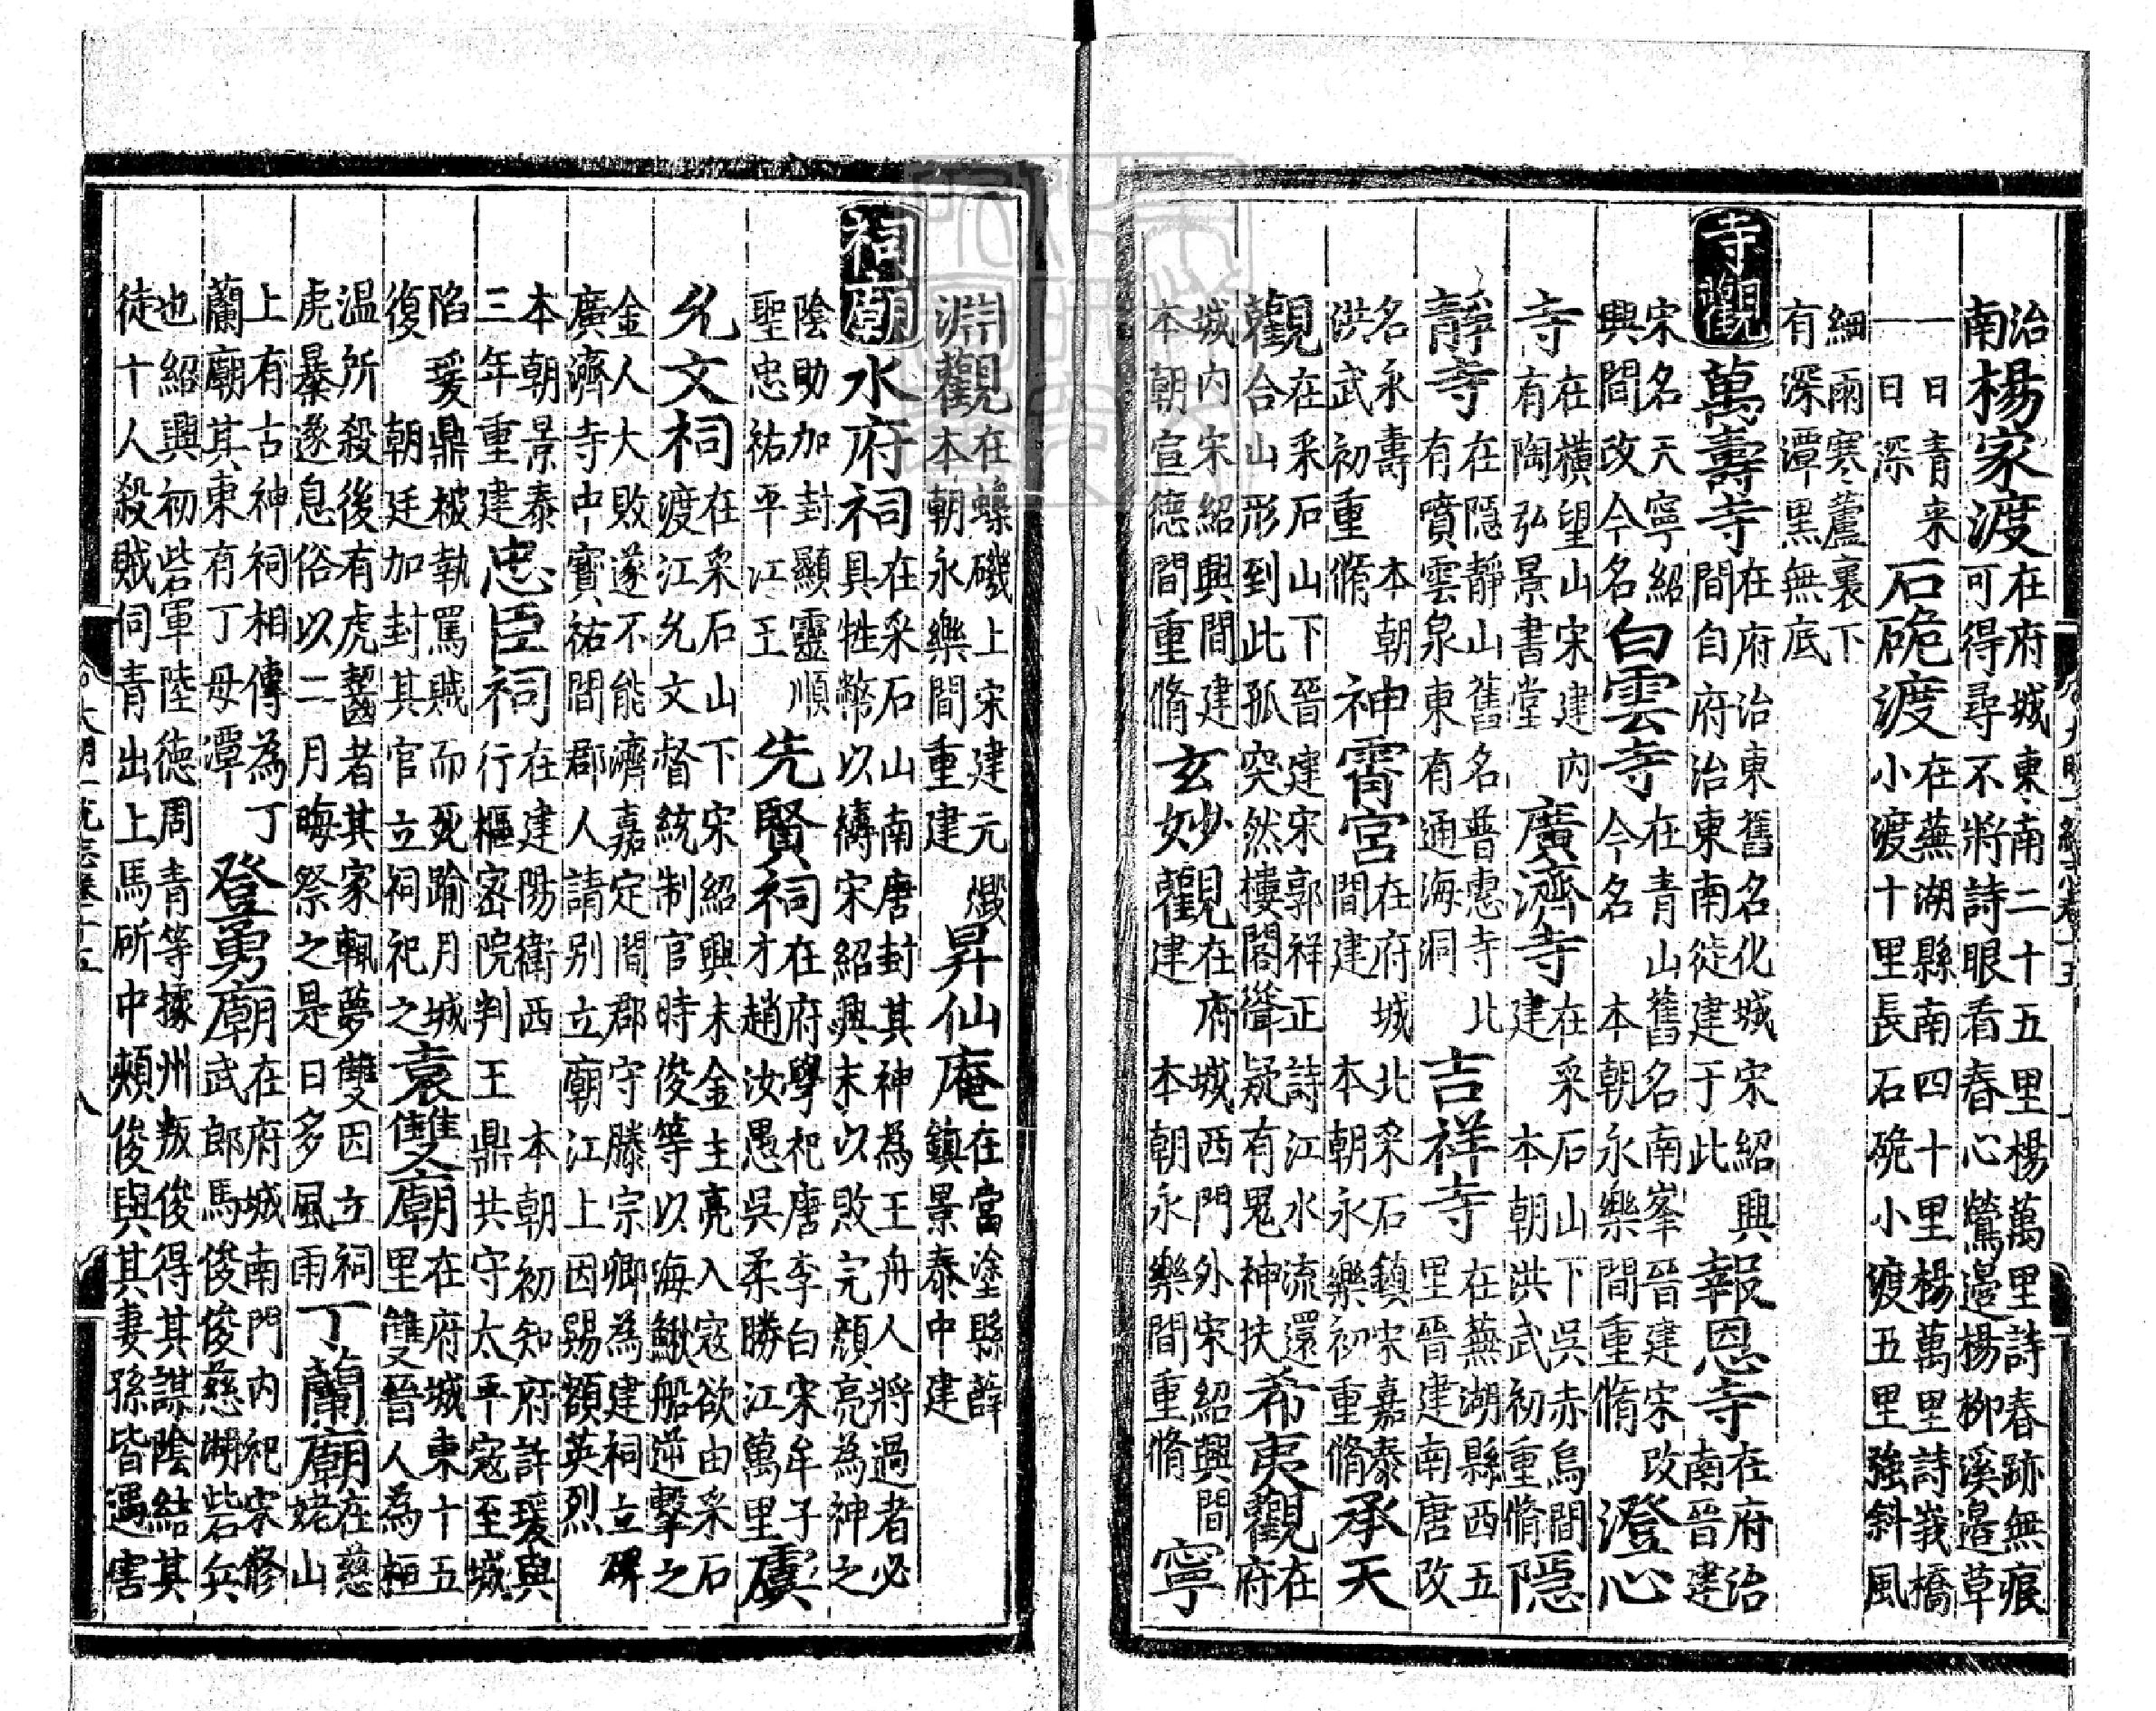 治南楊家渡在府城東南二十五里楊萬里詩春跡無痕可得尋不將詩眼看春心鶯邊楊柳溪邊草
一日青来一日深石硊渡在蕪湖縣南四十里楊萬里詩峩橋小渡十里長石硊小渡五里強斜風
細雨寒蘆裏下有深潭黑無底
寺觀萬壽寺在府治東舊名化城宋紹興間自府治東南徙建于此報恩寺在府治南晉建
宋名天寧紹興間改今名白雲寺在青山舊名南峯晉建宋改今名 本朝永樂間重脩澄心
寺在橫望山宋建内有陶弘景書堂廣濟寺在采石山下吳赤烏間建 本朝洪武初重脩隱
靜寺在隱靜山舊名普惠寺北有噴雲泉東有通海洞吉祥寺在蕪湖縣西五里晉建南唐改
名永壽 本朝洪武初重脩神霄宮在府城北采石鎮宋嘉泰間建 本朝永樂初重脩承天
觀在采石山下晉建宋郭祥正詩江水流還合山形到此孤突然樓閣聳疑有鬼神扶希夷觀在府
城内宋紹興間建本朝宣德間重脩玄妙觀在府城西門外宋紹興間建 本朝永樂間重脩寧
淵觀在蟂磯上宋建元燬本朝永樂間重建昇仙庵在當塗縣薛鎮景泰中建
祠廟水府祠在采石山南唐封其神為王舟人將過者必具牲幣以禱宋紹興末以敗完顔亮為神之
陰助加封顯靈順聖忠祐平江王先賢祠在府學祀唐李白宋牟子才趙汝愚吳柔勝江萬里虞
允文祠在采石山下宋紹興末金主亮入寇欲由采石渡江允文督統制官時俊等以海鰍船逆擊之
金人大敗遂不能濟嘉定間郡守滕宗卿為建祠立碑廣濟寺中寶祐間郡人請別立廟江上因賜額英烈
本朝景泰三年重建忠臣祠在建陽衛西 本朝初知府許瑗與行樞密院判王鼎共守太平寇至城
陷瑗鼎被執罵賊而死踰月城復 朝廷加封其官立祠祀之袁雙廟在府城東十五里雙晉人為桓
温所殺後有虎齧者其家輒夢雙因立祠虎暴遂息俗以二月晦祭之是日多風雨丁蘭廟在慈姥山
上有古神祠相傳為丁蘭廟其東有丁母潭登勇廟在府城南門内祀宋修武郎馬俊俊慈湖砦兵
也紹興初砦軍陸德周青等據州叛俊得其謀陰結其徒十人殺賊伺青出上馬斫中頰俊與其妻孫皆遇害
大明一統志卷十五
八